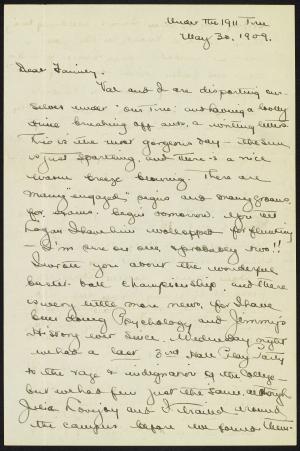 Under the 1911 Tree
May 30, 1909.
Dear Family.
Val and I are disporting our-
selves under "our tree" and having a lovely
time breaking off ants, & writing letters.
This is the most gorgeous day - the sun
is just sparkling, and there is a nice
warm breeze blowing. There are
many "engaged" signs and many groans,
for exams. begin tomorrow. You tell
I have him walloped for flunking
- I'm sure on one, & probably two!!
I wrote you about the wonderful
basket ball championship, and there
is very little more news, for I have
been doing Psychology and Jimmy's
History ever since. Wednesday night
we had a last 3rd Hall Play Party
to the rage & indignation of the College -
but we had fun just the same, although
Julia Lovejoy and I trailed around
the campus before we found them-